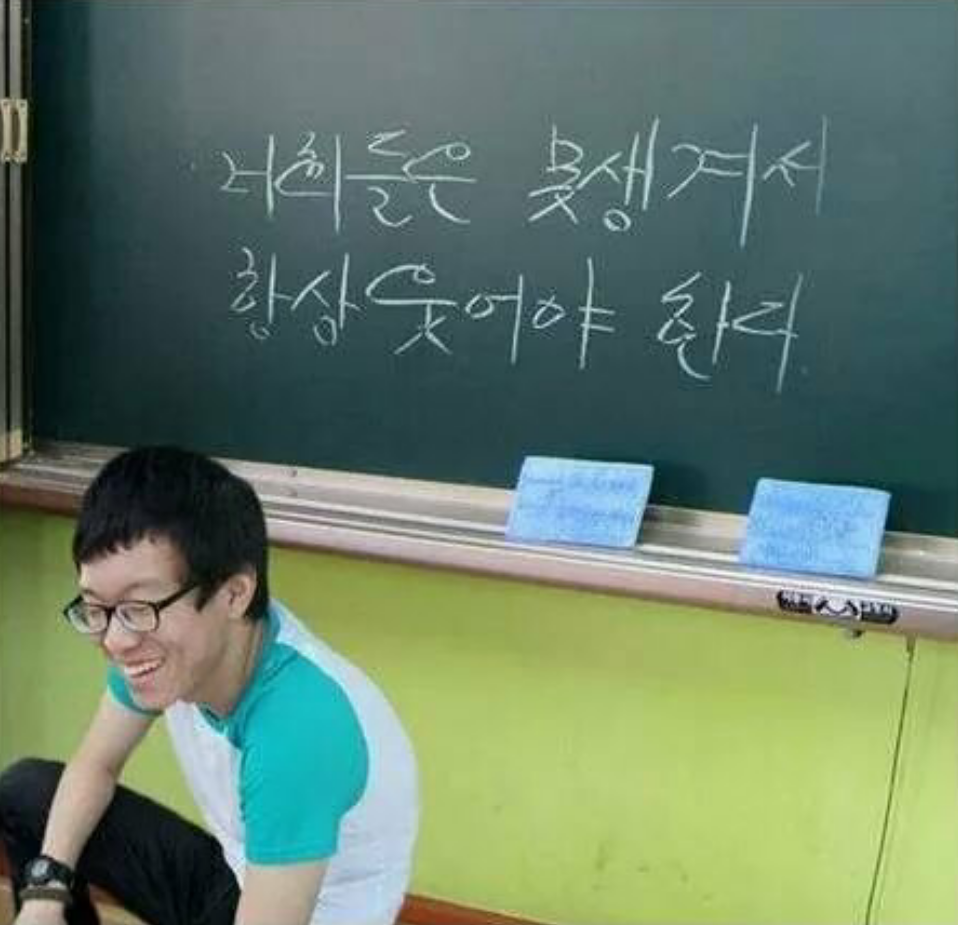 너희들은 못생겨서
항상 웃어야 한다